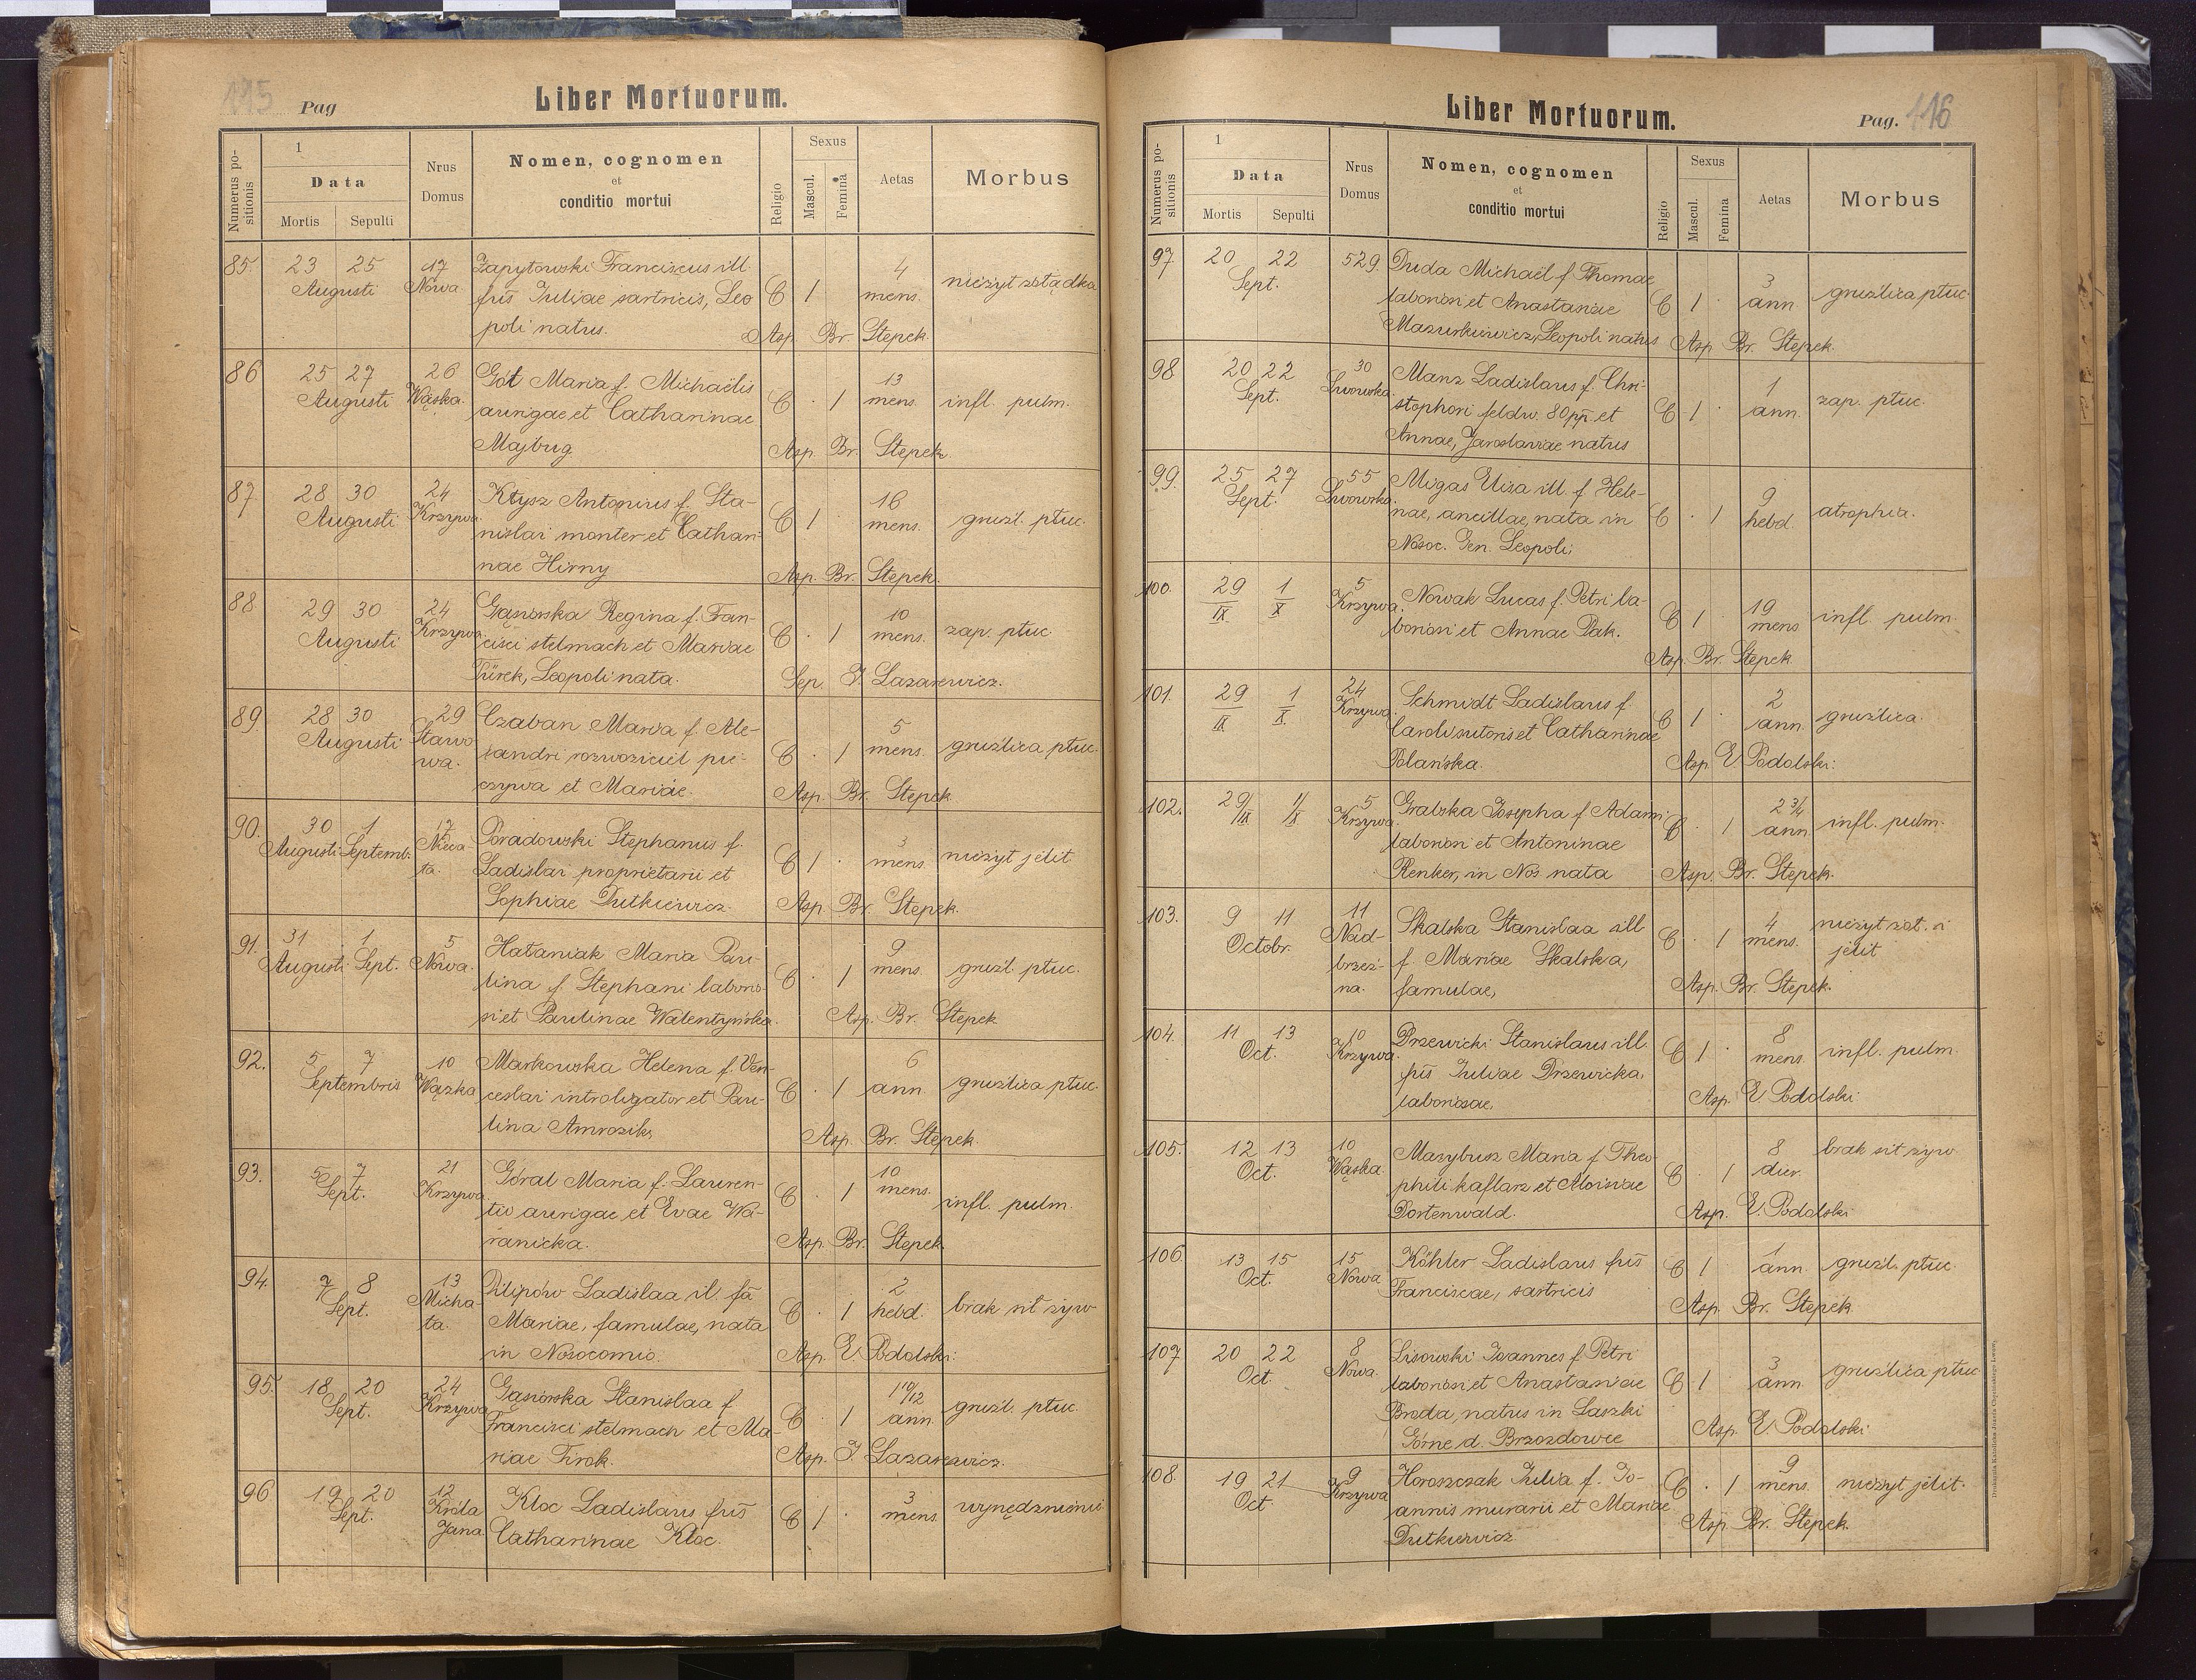 115 Pag
Liber Mortuorum.
Numerus positionis
1
Data
Mortis Sepulti
Nrus Domus
Nomen, cognomen
et
conditio mortui
Religio
Sexus
Mascul. Femina
Aetas
Morbus
85. 23 25 17 Zapytowski Franciscus ill 4
Augusti Nowa fus Juliae sartricis, Leo C 1 mens. nieżyt żołądka
poli natus. Asp. Br. Stepek.
86 25 27 26 Gół Maria f. Michaëlis 13
Augusti Wąska. aurigae et Catharinae C · 1 mens. infl. pulm.
Majbug. Asp. Br. Stepek.
87. 28 30 24 Kłysz Antonius f. Sta- 16
Augusti Krzywa. nislai monter et Cathari- C 1 · mens. gruźl. płuc.
nae Hirny Asp. Br. Stepek.
88 29 30 24 Gąsiorska Regina f. Fran- 10
Augusti Krzywa cisci stelmach et Mariae C · 1 mens. zap. płuc.
Türek, Leopoli nata. Sep. J. Lazarewicz.
89. 28 30 29 Czaban Maria f. Ale- 5
Augusti Stawo sandri rozwoziciel pie- C · 1 mens. gruźlica płuc.
wa. czywa et Mariae. Asp. Br. Stepek
90. 30 1 17 Poradowski Stephanus f. 3
Augusti Septemb. Ladislai proprietarii et C 1 · mens. nieżyt jelit
ta. Sophiae Dutkiewicz. Asp. Br. Stepek.
91. 31 1 5 Hałaniak Maria Pau- 9
Augusti Sept. Nowa. lina f. Stephani laborio- C · 1 mens. gruźl. płuc.
si et Paulinae Walentyńska. Asp. Br. Stepek
92. 5 7 10 Markowska Helena f. Ven- 6
Septembris Wązka ceslai introligator et Pau- C · 1 ann. gruźlica płuc.
lina Amrozik, Asp. Br. Stepek.
93. 5 7 21 Góral Maria f. Lauren- 10
Sept. Krzywa. tio aurigae et Evae Wa- C · 1 mens. infl. pulm.
ranicka. Asp. Br. Stepek.
94. 7 8 13 Pilipów Ladislaa il. fa 2
Sept. Micha- Mariae, famulae, nata C · 1 hebd. brak sił żyw
ła. in Nosocomio. Asp. E. Podolski.
95. 18 20 24 Gąsiorska Stanislaa f. 1 10/12
Sept. Krzywa Francisci stelmach et Ma- C · 1 ann. gruźl. płuc.
riae Tirok. Asp. J. Lazarewicz.
96 19 20 12 Kloc Ladislaus fus 3
Sept. Króla Catharinae Kloc. C 1 · mens. wynędznienie
Jana.
Liber Mortuorum.
Pag. 116
Numerus positionis
1
Data
Mortis Sepulti
Nrus Domus
Nomen, cognomen
et
conditio mortui
Religio
Sexus
Mascul. Femina
Aetas
Morbus
97 20 22 529. Duda Michaël f Thomae 3
Sept. laboriosi et Anastasiae C 1 · ann. gruźlica płuc.
Mazurkiewicz, Leopoli natus Asp. Br. Stepek.
98 20 22 30 Manz Ladislaus f. Chri- 1
Sept. Lwowska. stophori feldw. 80pp. et C 1 · ann. zap. płuc.
Annae, Jaroslaviae natus
99. 25 27 55 Migas Uisa ill. f. Hele- 9
Sept. Lwowska. nae, ancillae, nata in C · 1 hebd. atrophia.
Nosoc. Gen. Leopoli,
100. 29 1 5 Nowak Lucas f. Petri la- 19
IX X Krzywa. boriosi et Annae Pak. C 1 mens infl. pulm.
Asp. Br. Stepek.
101. 29 1 24 Schmidt Ladislaus f. 2
IX X. Krzywa. Caroli sutoris et Catharinae C 1 · ann. gruźlica.
Polańska. Asp. E. Podolski.
102. 29/IX 1/X 5 Gralska Josepha f Adami 2 3/4
Krzywa. laboriosi et Antoninae C · 1 ann infl. pulm.
Renker, in Nos. nata Asp. Br. Stepek.
103. 9 11 11 Skalska Stanislaa ill 4 nieżyt żoł. i
Octobr. Nad- f. Mariae Skalska, C · 1 mens. jelit
brzeż- na. famulae, Asp. Br. Stepek.
104. 11 13 10 Drzewicki Stanislaus ill. 8
Oct. Krzywa. fus Juliae Drzewicka, C 1 · mens. infl. pulm.
laboriosae, Asp. E. Podolski
105. 12 13 10 Mazybusz Maria f Theo- 8 brak sił żyw
Oct. Wąska. phili kaflarz et Aloisiae C · 1 dier.
Dortenwald. Asp. E. Podolski
106. 13 15 15 Köhler Ladislaus fus 1
Oct. Nowa Franciscae, sartricis C 1 ann. gruźl. płuc
Asp. Br. Stepek
107 20 22 8 Lisowski Joannes f Petri 3
Oct. Nowa. laboriosi et Anastasiae C 1 · ann. gruźlica płuc
Breda, natus in Laszki
Górne d. Brzozdowce Asp. E. Podolski
108. 19 21 9 Horoszczak Julia f. Jo- 9
Oct Krzywa annis murarii et Mariae C · 1 mens. nieżyt jelit.
Dutkiewicz Asp. Br. Stepek.